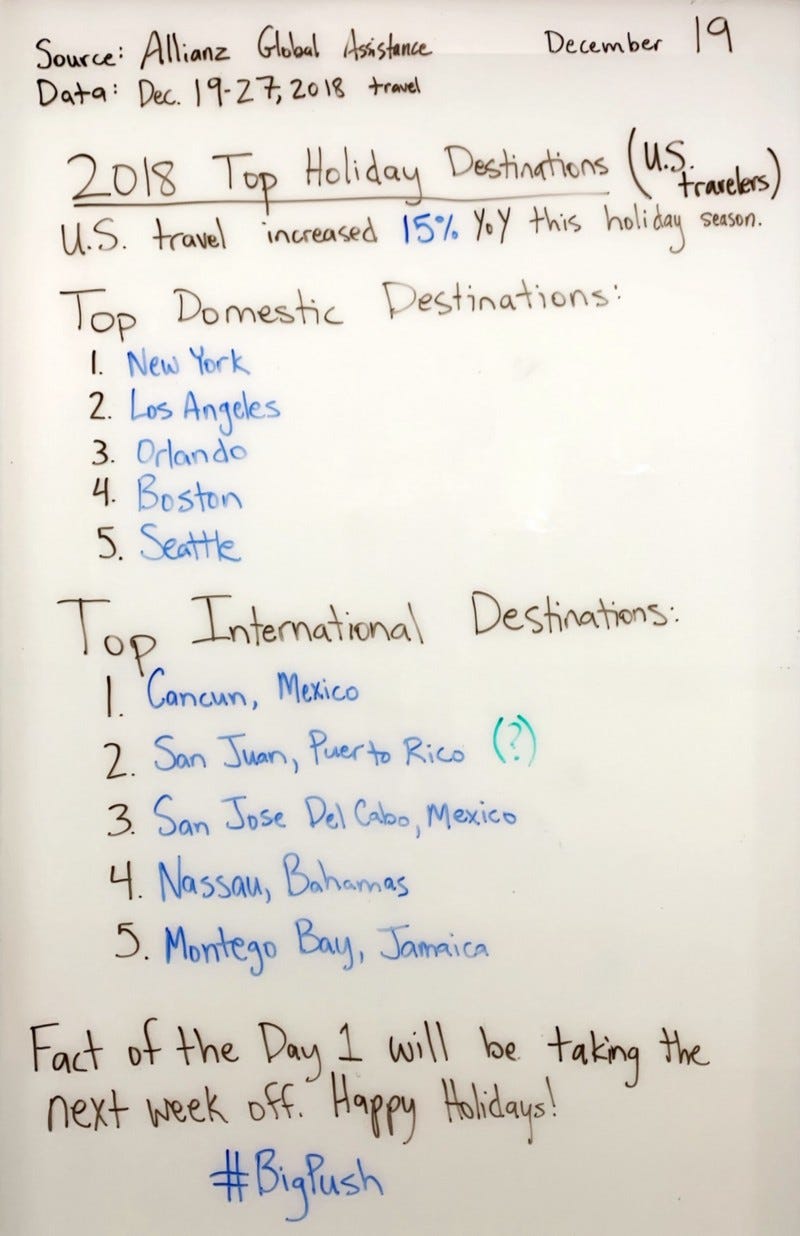 Source: Allianz Global Assistance
December 19
Data: Dec. 19-27, 2018 travel
2018 Top Holiday Destinations (U.S. travelers)
U.S. travel increased 15% YoY this holiday season.
Top Domestic Destinations:
1. New York
2. Los Angeles
3. Orlando
4. Boston
5. Seattle
Top International Destinations:
1. Cancun, Mexico
2. San Juan, Puerto Rico (?)
3. San Jose Del Cabo, Mexico
4. Nassau, Bahamas
5. Montego Bay, Jamaica
Fact of the Day 1 will be taking the
next week off. Happy Holidays!
#BigPush